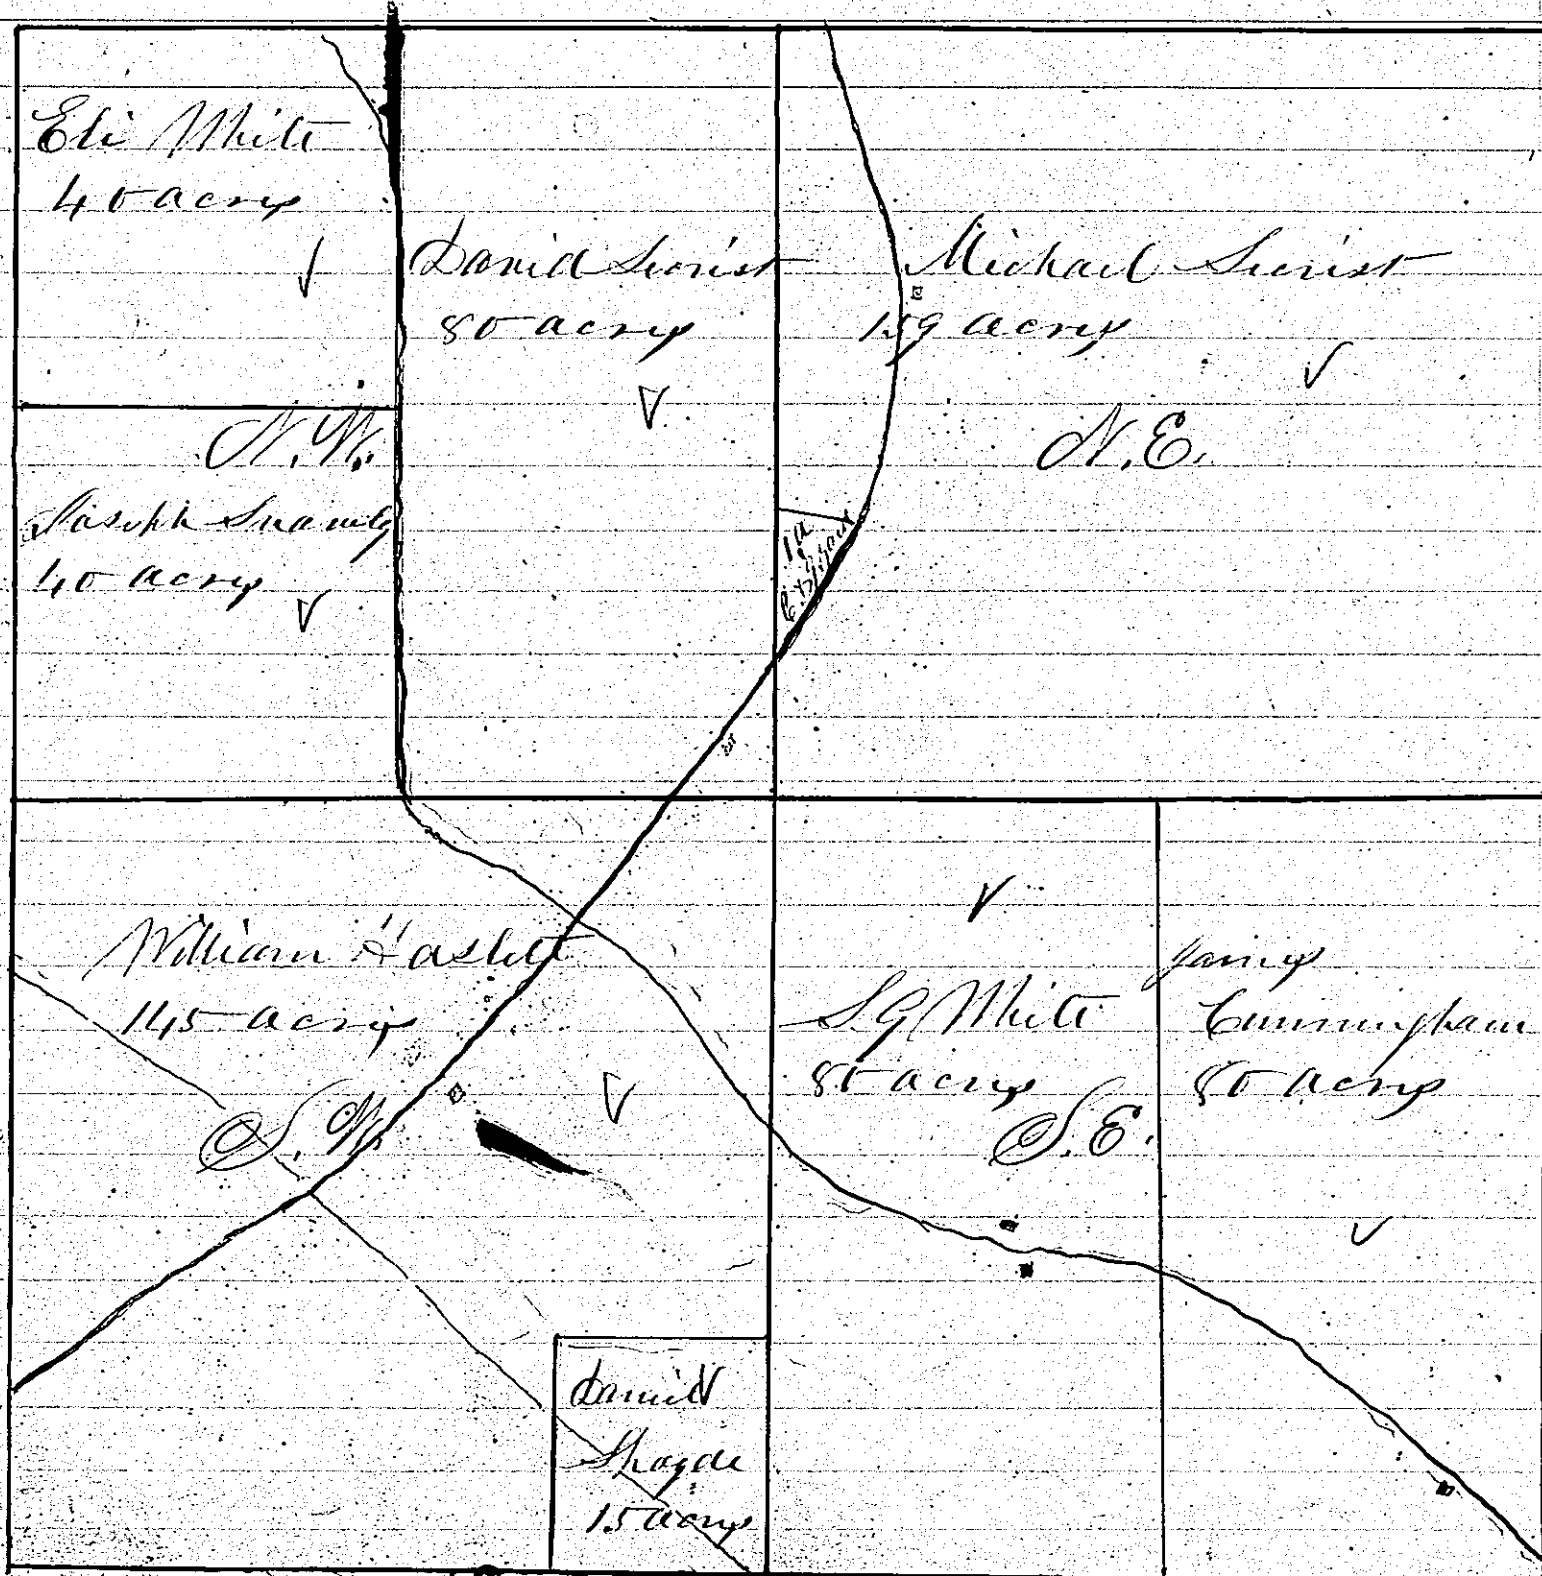 Eli White
40 acres
David Secrist
80 acres
Michael Secrist
159 acres
N.W.
N.E.
Joseph
40 acres
1a
William Haslett
145 acres
S.W.
S G White
80 acres
S.E.
James
Cunningham
80 acres
Daniel
15 acres